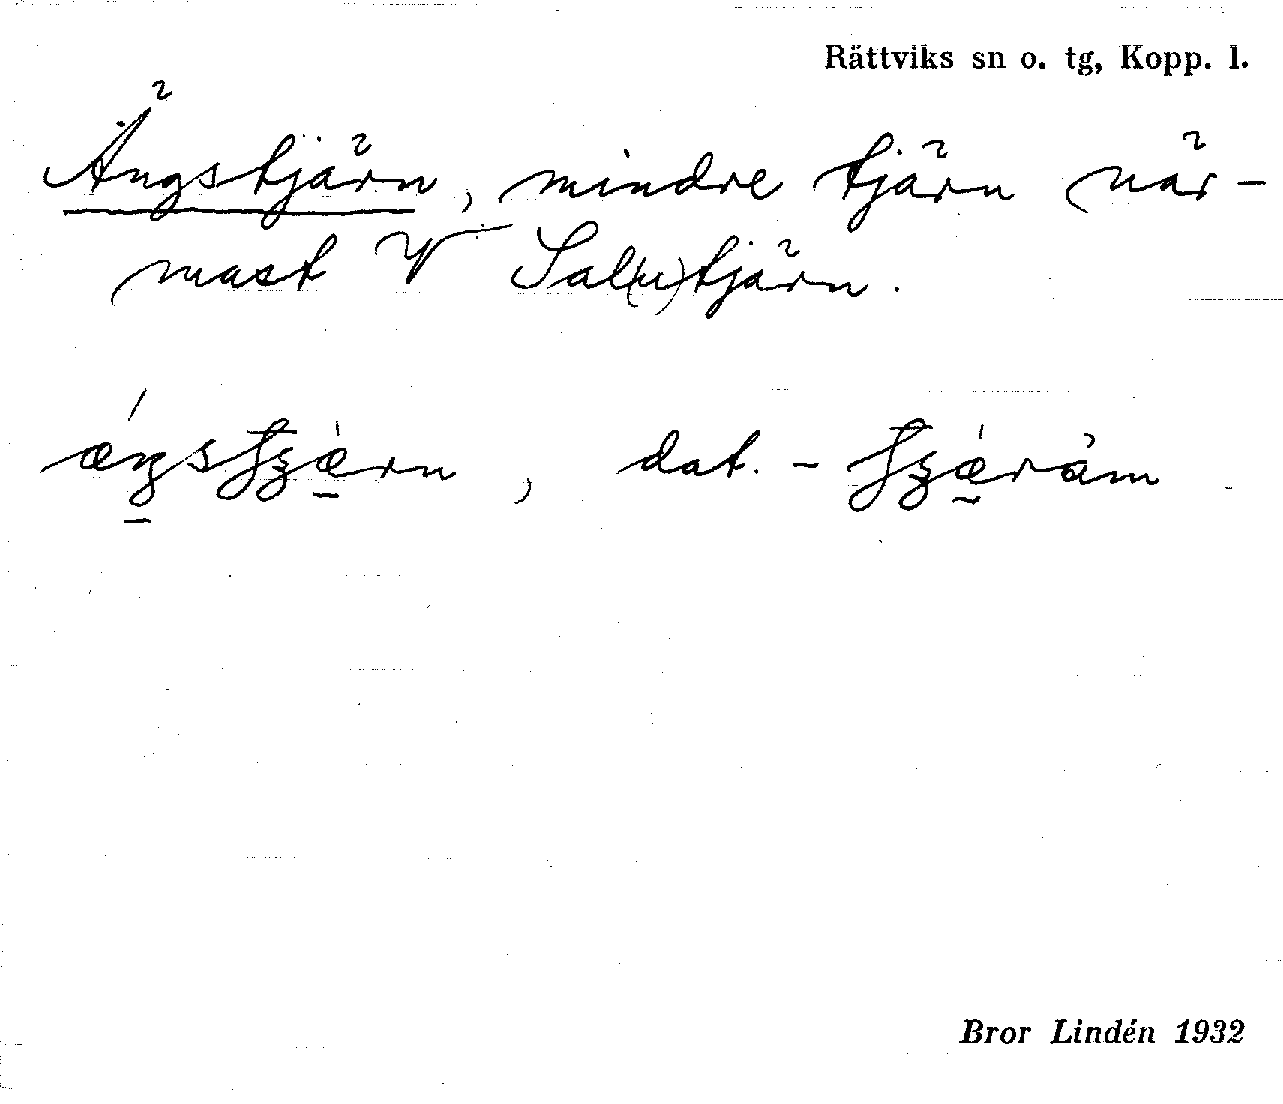 Rättviks sn o. tg, Kopp. l.
Ängstjärn, mindre tjärn när-
mast V Sal(u)tjärn.
dat.
Bror Lindén 1932